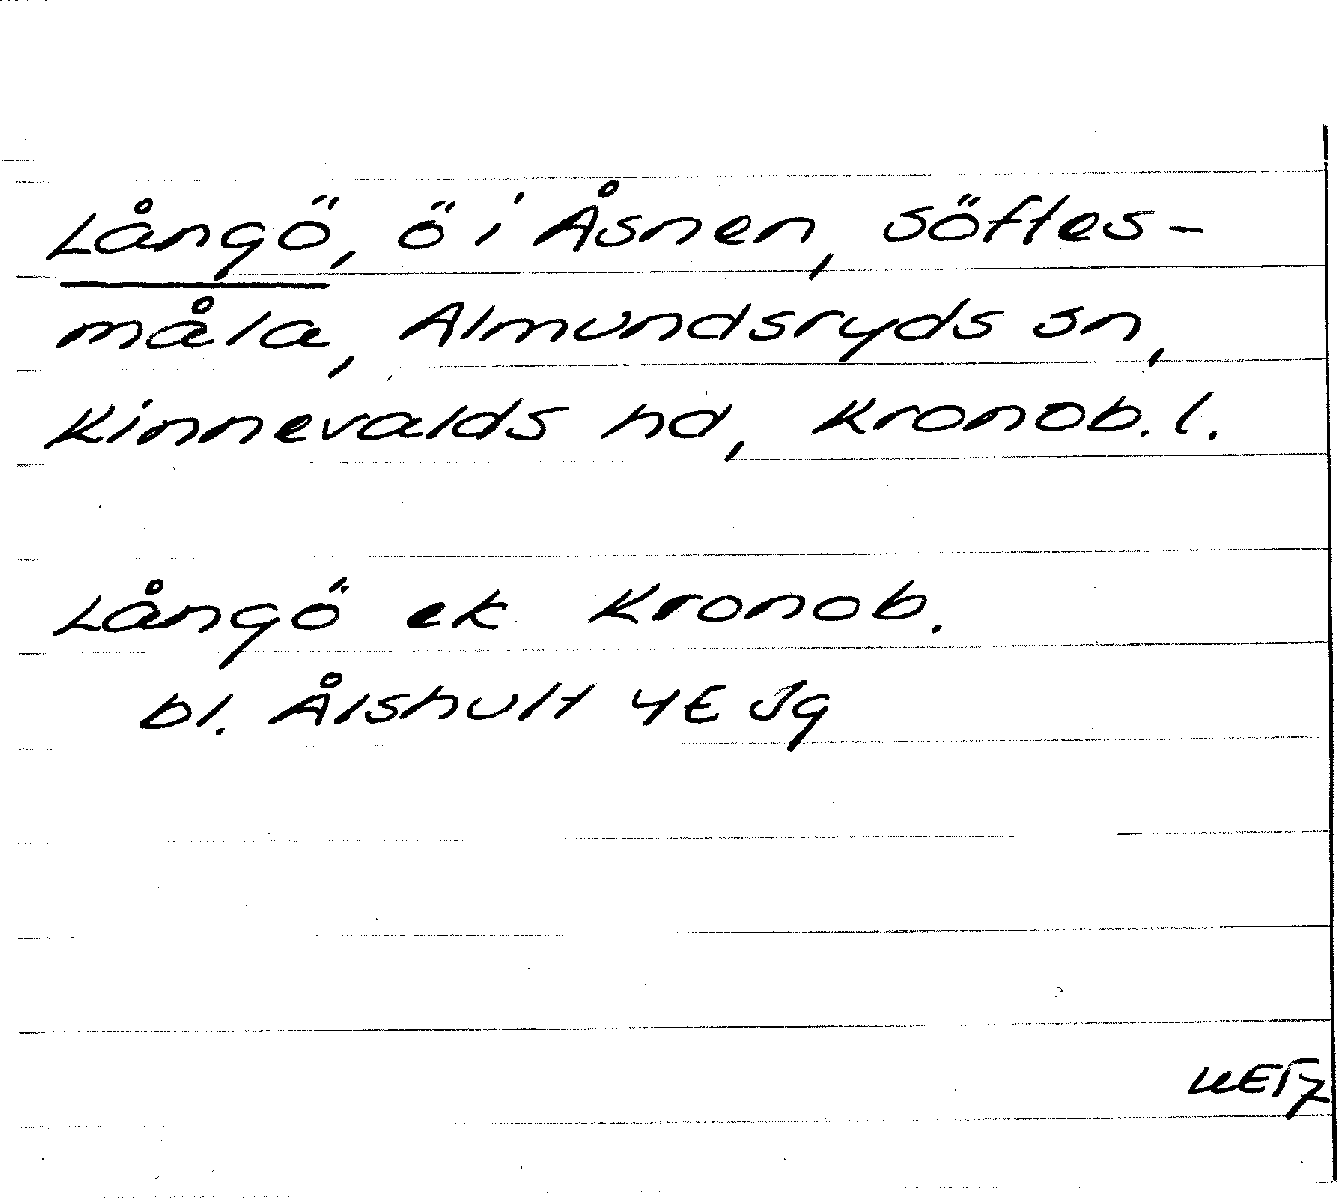 Långö, ö i Åsnen, Söftes-
måla, Almundsryds sn,
Kinnevalds hd, Kronob. l.
Långö ek Kronob.
bl. Ålshult 4E Jg